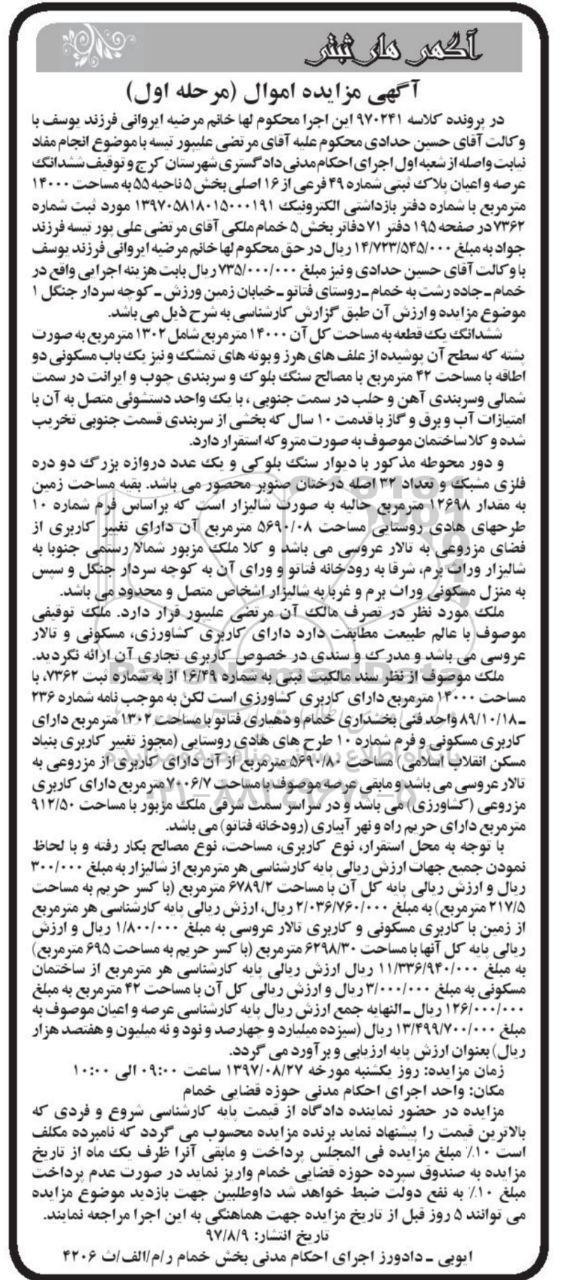 آگهی های ثبتی
آگهی مزایده اموال (مرحله اول)
در پرونده کلاسه ۹۷۰۲۴۱ این اجرا محکوم لها خانم مرضیه ایروانی فرزند یوسف با
وکالت آقای حسین حدادی محکوم علیه آقای مرتضی علیپور تیسه با موضوع انجام مفاد
نیابت واصله از شعبه اول اجرای احکام مدنی دادگستری شهرستان کرج و توقیف ششدانگ
عرصه و اعیان پلاک ثبتی شماره ۴۹ فرعی از ۱۶ اصلی بخش ۵ ناحیه ۵۵ به مساحت ۱۴۰۰۰
مترمربع با شماره دفتر بازداشتی الکترونیک ۱۳۹۷۰۵۸۱۸۰۱۵۰۰۰۱۹۱ مورد ثبت شماره
۷۳۶۲ در صفحه ۱۹۵ دفتر ۷۱ دفاتر بخش ۵ خمام ملکی آقای مرتضی علی پور تیسه فرزند
جواد به مبلغ ۱۴/۷۲۳/۵۴۵/۰۰۰ ریال در حق محکوم لها خانم مرضیه ایروانی فرزند یوسف
با وکالت آقای حسین حدادی و نیز مبلغ ۷۳۵/۰۰۰/۰۰۰ ریال بابت هزینه اجرایی واقع در
خمام ـ جاده رشت به خمام ـ روستای فتاتو ـ خیابان زمین ورزش ـ کوچه سردار جنگل ۱
موضوع مزایده و ارزش آن طبق گزارش کارشناسی به شرح ذیل می باشد.
ششدانگ یک قطعه به مساحت کل آن ۱۴۰۰۰ مترمربع شامل ۱۳۰۲ مترمربع به صورت
پشته که سطح آن پوشیده از علف های هرز و بوته های تمشک و نیز یک باب مسکونی دو
اطاقه با مساحت ۴۲ مترمربع با مصالح سنگ بلوک و سربندی چوب و ایرانت در سمت
شمالی وسربندی آهن و حلب در سمت جنوبی ، با یک واحد دستشوئی متصل به آن با
امتیازات آب و برق و گاز با قدمت ۱۰ سال که بخشی از سربندی قسمت جنوبی تخریب
شده و کلا ساختمان موصوف به صورت متروکه استقرار دارد.
و دور محوطه مذکور با دیوار سنگ بلوکی و یک عدد دروازه بزرگ دو دره
فلزی مشبک و تعداد ۳۲ اصله درختان صنوبر محصور می باشد. بقیه مساحت زمین
به مقدار ۱۲۶۹۸ مترمربع حالیه به صورت شالیزار است که براساس فرم شماره ۱۰
طرحهای هادی روستایی مساحت ۵۶۹۰/۰۸ مترمربع آن دارای تغییر کاربری از
فضای مزروعی به تالار عروسی می باشد و کلا ملک مزبور شمالا رستمی جنوبا به
شالیزار وراث برم، شرقا به رودخانه فتاتو و ورای آن به کوچه سردار جنگل و سپس
به منزل مسکونی وراث برم و غربا به شالیزار اشخاص متصل و محدود می باشد.
ملک مورد نظر در تصرف مالک آن مرتضی علیپور قرار دارد. ملک توقیفی
موصوف با عالم طبیعت مطابقت دارد دارای کاربری کشاورزی، مسکونی و تالار
عروسی می باشد و مدرک و سندی در خصوص کاربری تجاری آن ارائه نگردید.
ملک موصوف از نظر سند مالکیت ثبتی به شماره ۱۶/۴۹ از به شماره ثبت ۷۳۶۲، با
مساحت ۱۴۰۰۰ مترمربع دارای کاربری کشاورزی است لکن به موجب نامه شماره ۲۳۶
ـ ۸۹/۱۰/۱۸ واحد فنی بخشداری خمام و دهیاری فتاتو با مساحت ۱۳۰۲ مترمربع دارای
کاربری مسکونی و فرم شماره ۱۰ طرح های هادی روستایی (مجوز تغییر کاربری بنیاد
مسکن انقلاب اسلامی) مساحت ۵۶۹۰/۸۰ مترمربع از آن دارای کاربری از مزروعی به
تالار عروسی می باشد و مابقی عرصه موصوف با مساحت ۷۰۰۶/۷ مترمربع دارای کاربری
مزروعی (کشاورزی) می باشد و در سراسر سمت شرقی ملک مزبور با مساحت ۹۱۲/۵۰
مترمربع دارای حریم راه و نهر آبیاری (رودخانه فتاتو) می باشد.
با توجه به محل استقرار، نوع کاربری، مساحت، نوع مصالح بکار رفته و با لحاظ
نمودن جمیع جهات ارزش ریالی پایه کارشناسی هر مترمربع از شالیزار به مبلغ ۳۰۰/۰۰۰
ریال و ارزش ریالی پایه کل آن با مساحت ۶۷۸۹/۲ مترمربع (با کسر حریم به مساحت
۲۱۷/۵ مترمربع) به مبلغ ۲/۰۳۶/۷۶۰/۰۰۰ ریال، ارزش ریالی پایه کارشناسی هر مترمربع
از زمین با کاربری مسکونی و کاربری تالار عروسی به مبلغ ۱/۸۰۰/۰۰۰ ریال و ارزش
ریالی پایه کل آنها با مساحت ۶۲۹۸/۳۰ مترمربع (با کسر حریم به مساحت ۶۹۵ مترمربع)
به مبلغ ۱۱/۳۳۶/۹۴۰/۰۰۰ ریال ارزش ریالی پایه کارشناسی هر مترمربع از ساختمان
مسکونی به مبلغ ۳/۰۰۰/۰۰۰ ریال و ارزش ریالی کل آن با مساحت ۴۲ مترمربع به مبلغ
۱۲۶/۰۰۰/۰۰۰ ریال ـ النهایه جمع ارزش ریال پایه کارشناسی عرصه و اعیان موصوف به
مبلغ ۱۳/۴۹۹/۷۰۰/۰۰۰ ریال (سیزده میلیارد و چهارصد و نود و نه میلیون و هفتصد هزار
ریال) بعنوان ارزش پایه ارزیابی و برآورد می گردد.
زمان مزایده: روز یکشنبه مورخه ۱۳۹۷/۰۸/۲۷ ساعت ۰۹:۰۰ الی ۱۰:۰۰
مکان: واحد اجرای احکام مدنی حوزه قضایی خمام
مزایده در حضور نماینده دادگاه از قیمت پایه کارشناسی شروع و فردی که
بالاترین قیمت را پیشنهاد نماید برنده مزایده محسوب می گردد که نامبرده مکلف
است ۱۰٪ مبلغ مزایده فی المجلس پرداخت و مابقی آنرا ظرف یک ماه از تاریخ
مزایده به صندوق سپرده حوزه قضایی خمام واریز نماید در صورت عدم پرداخت
مبلغ ۱۰٪ به نفع دولت ضبط خواهد شد داوطلبین جهت بازدید موضوع مزایده
می توانند ۵ روز قبل از تاریخ مزایده جهت هماهنگی به این اجرا مراجعه نمایند.
تاریخ انتشار: ۹۷/۸/۹
ایوبی ـ دادورز اجرای احکام مدنی بخش خمام ر/م/الف/ث ۴۲۰۶